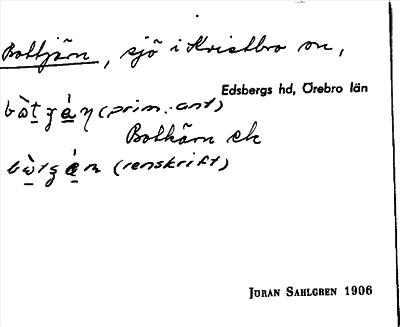 Bottjärn, sjö i Kristbro sn,
Edsbergs hd, Örebro län
(prim. ant)
Botkärn ek
(renskrift)
JÖRAN SAHLGREN 1906